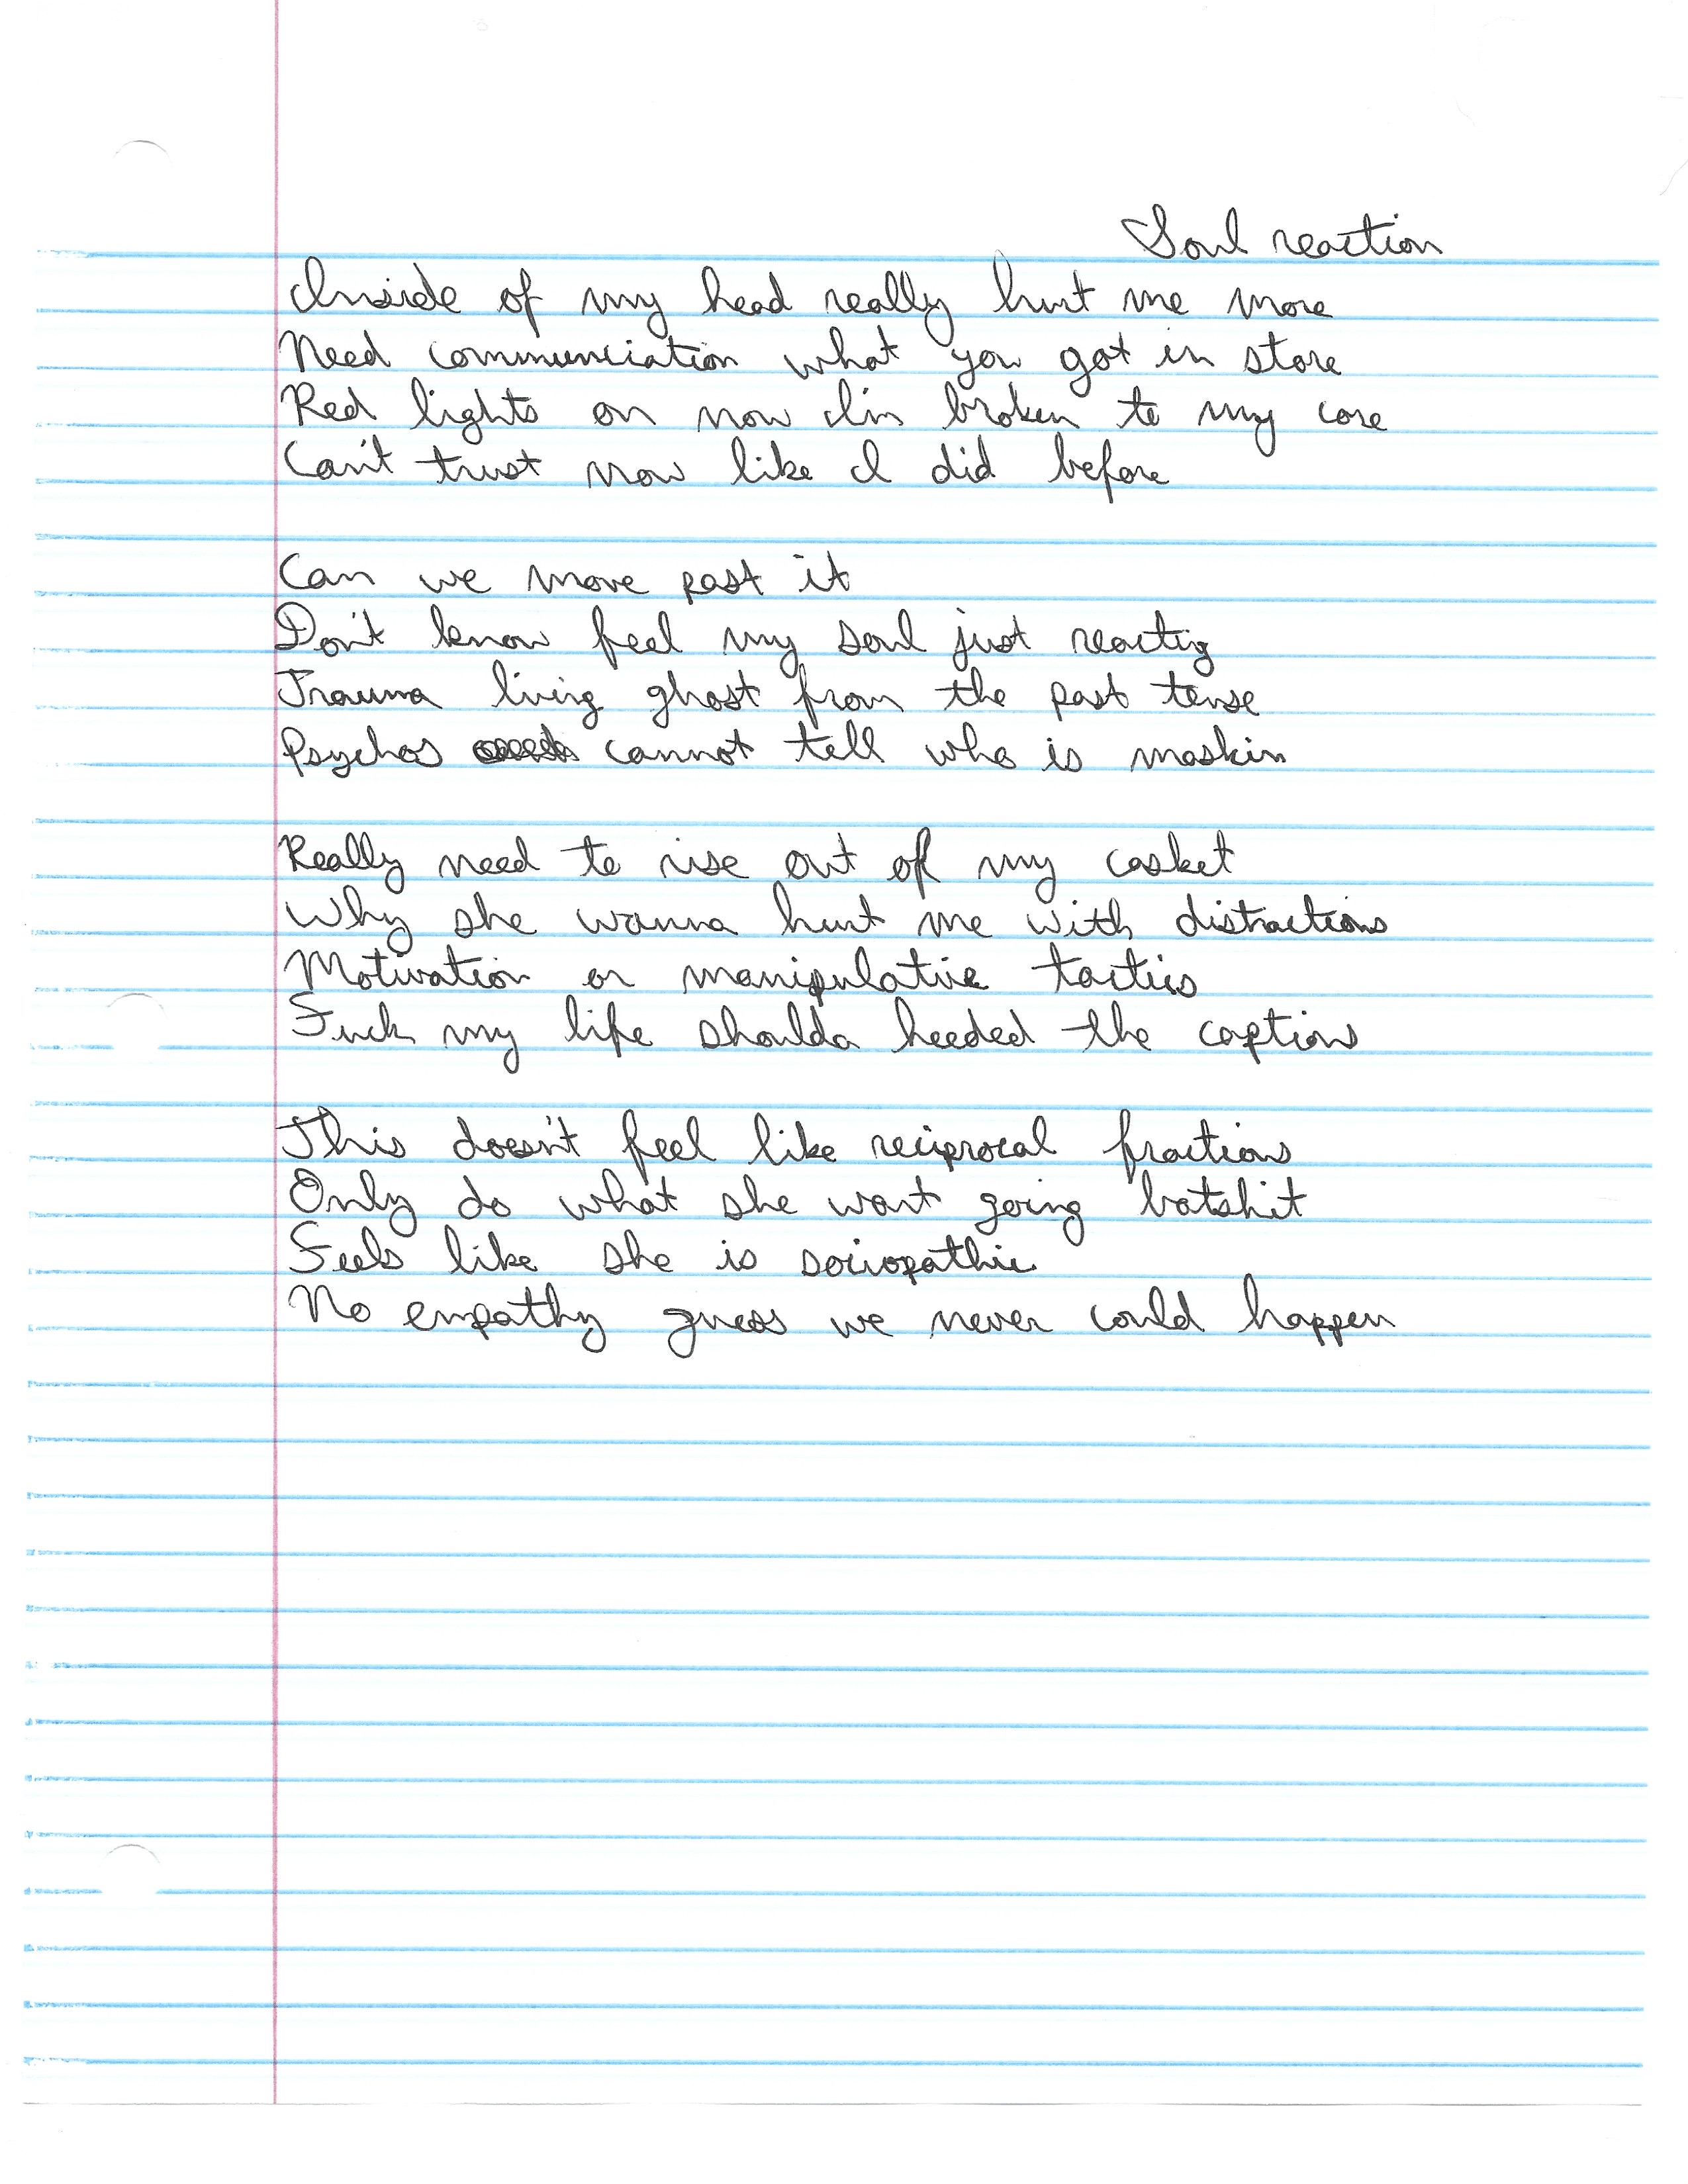 Soul reaction
Inside of my head really hurt me more
Need communciation what you got in store
Red lights on now I'm broken to my core
Can't trust now like I did before
Can we move past it
Don't know feel my soul just reactig
Trauma living ghost from the past tense
Psychos cannot tell who is maskin
Really need to rise out of my casket
Why she wanna hurt me with distractions
Motivation or manipulative tactics
Fuck my life shoulda heeded the caption
This doesn't feel like reciprocal fractions
Only do what she want going batshit
Feels like she is sociopathic
No empathy guess we never could happen